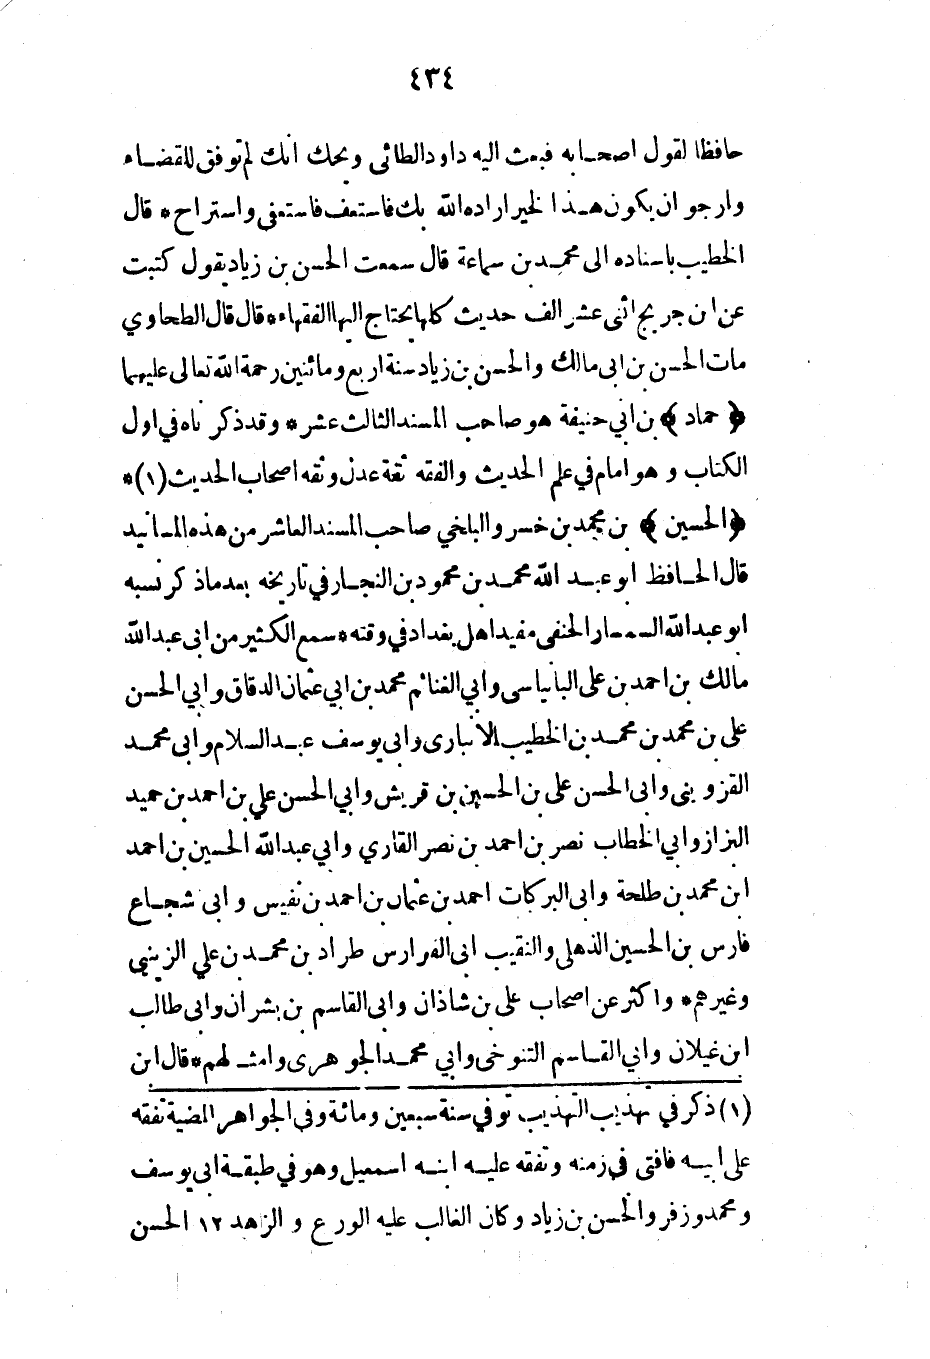 ٤٣٤
حافظا لقول اصحابه فبعث اليه داود الطائى ويحك انك لم توفق للقضاء
وارجو ان يكون هذا لخير اراده الله بك فاستعف فاستعفى واستراح * قال
الخطيب باسناده الى محمد بن سماعة قال سمعت الحسن بن زياد يقول كتبت
عن ابن جريج اثنى عشر الف حديث كلها يحتاج اليها الفقهاء * قال قال الطحاوي
مات الحسن بن ابى مالك والحسن بن زياد سنة اربع ومائتين رحمة الله تعالى عليهما
﴿ حماد ﴾ بن ابي حنيفة هو صاحب المسند الثالث عشر * وقد ذكرناه في اول
الكتاب وهو امام في علم الحديث والفقه ثقة عدل وثقه اصحاب الحديث (١) *
﴿ الحسين ﴾ بن محمد بن خسرو البلخي صاحب المسند العاشر من هذه المسانيد
قال الحافظ ابو عبد الله محمد بن محمود بن النجار في تاريخه بعد ماذكر نسبه
ابو عبدالله السمسار الحنفى مفيد اهل بغداد في وقته * سمع الكثير من ابى عبدالله
مالك بن احمد بن على البانياسى وابي الغنائم محمد بن ابي عثمان الدقاق وابي الحسن
على بن محمد بن محمد بن الخطيب الانبارى وابى يوسف عبد السلام وابى محمد
القزوينى وابى الحسن على بن الحسين بن قريش وابي الحسن علي بن احمد بن حميد
البزاز وابي الخطاب نصر بن احمد بن نصر القاري وابي عبدالله الحسين بن احمد
ابن محمد بن طلحة وابى البركات احمد بن عثمان بن احمد بن نفيس وابى شجاع
فارس بن الحسين الذهلى والنقيب ابى الفوارس طراد بن محمد بن علي الزينبي
وغيرهم * واكثر عن اصحاب على بن شاذان وابى القاسم بن بشران وابى طالب
ابن غيلان وابي القاسم التنوخى وابي محمد الجوهرى وامثالهم * قال ابن
(١) ذكر في تهذيب التهذيب توفي سنة سبعين ومائة وفى الجواهر المضية تفقه
على ابيه فافتى فى زمنه وتفقه عليه ابنه اسمعيل وهو في طبقة ابى يوسف
ومحمد وزفر والحسن بن زياد وكان الغالب عليه الورع والزهد ١٢ الحسن